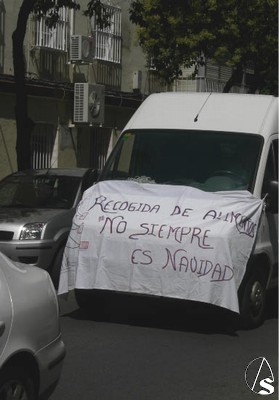 RECOGIDA DE ALIMENTOS
"NO SIEMPRE
ES NAVIDAD